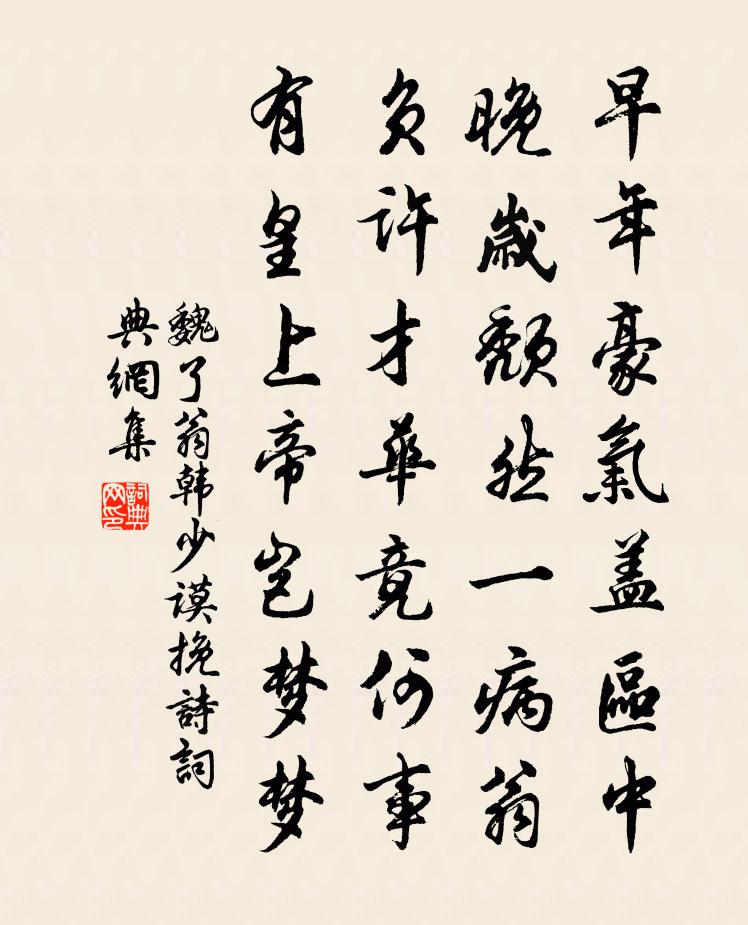 早年豪氣盖區中
晚歲頹然一病翁
負許才華竟何事
有皇上帝岂梦梦
魏了翁韩少谟挽詩詞
典網集
詞典网印